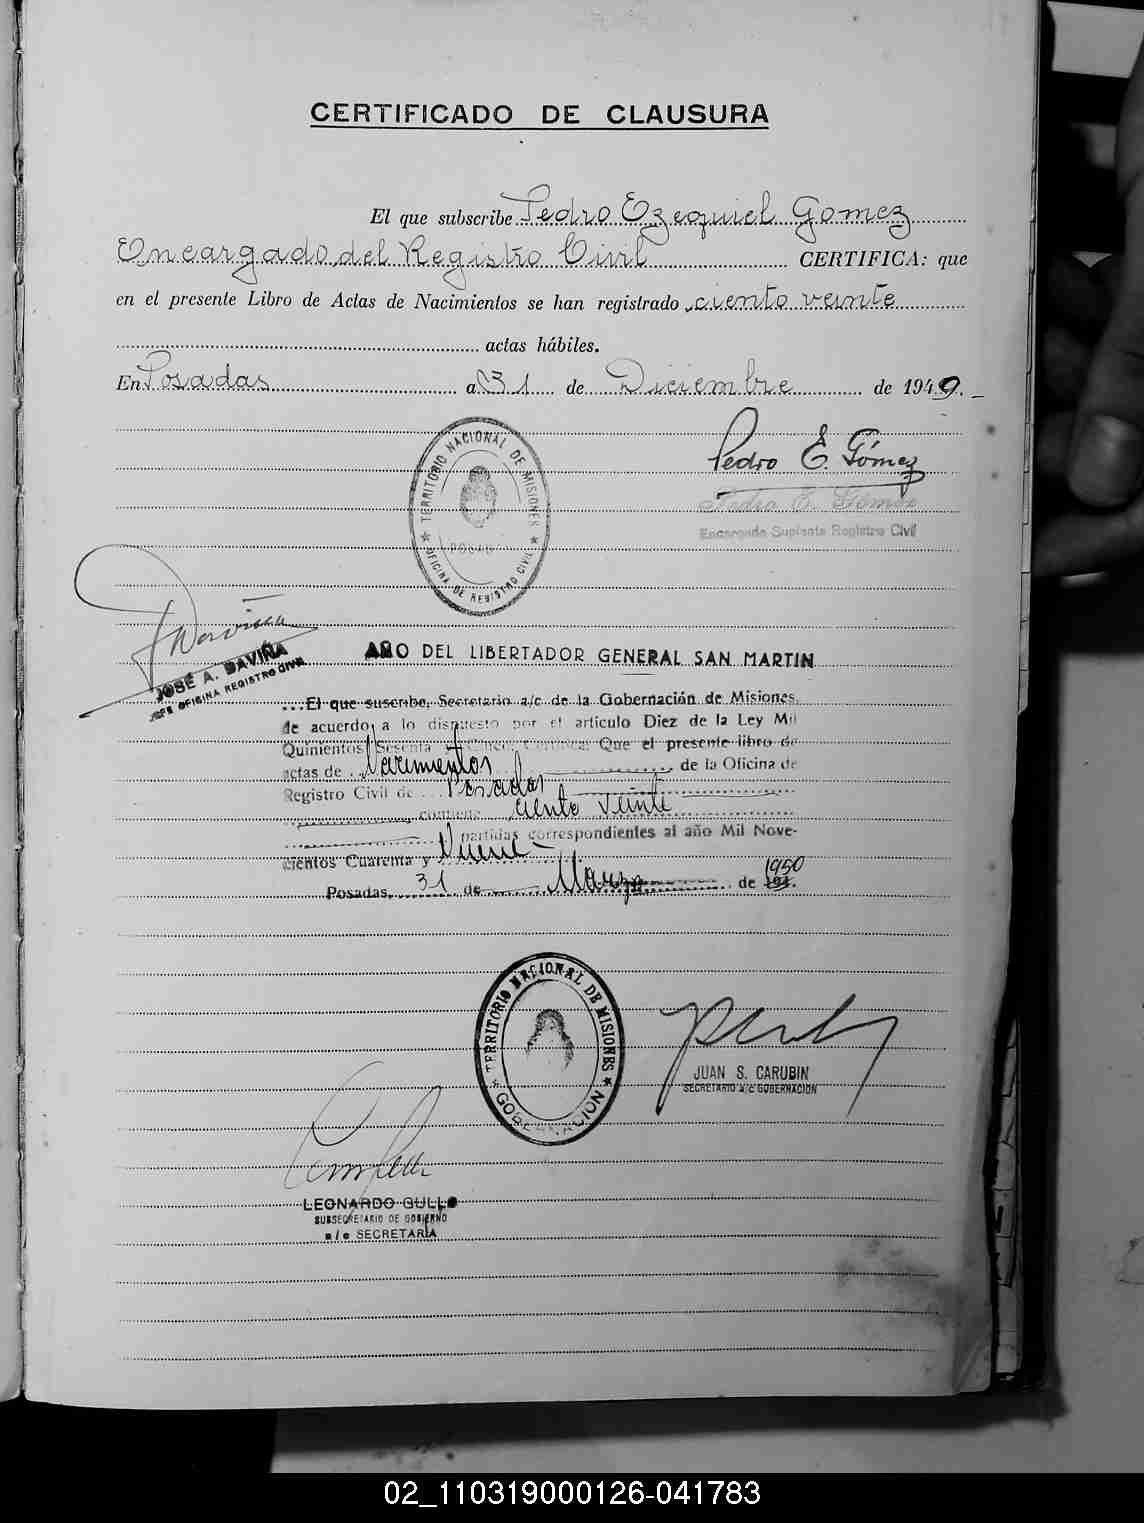 CERTIFICADO DE CLAUSURA
El que subscribe Pedro Ezequiel Gomez
Encargado del Registro Civil CERTIFICA: que
en el presente Libro de Actas de Nacimientos se han registrado ciento veinte
actas hábiles.
En Posadas a 31 de Diciembre de 1949.
TERRITORIO NACIONAL DE MISIONES
POSADAS
OFICINA DE REGISTRO CIVIL
Pedro E. Gómez
Pedro E. Gómez
Encargado Suplente Registro Civil
JOSÉ A. DAVIÑA
JEFE OFICINA REGISTRO CIVIL
AÑO DEL LIBERTADOR GENERAL SAN MARTIN
...El que suscribe, Secretario a/c de la Gobernación de Misiones,
de acuerdo a lo dispuesto por el artículo Diez de la Ley Mil
Quinientos Sesenta y Cinco, Certifica: Que el presente libro de
actas de Nacimientos, de la Oficina de
Registro Civil de Posadas
contiene ciento veinte
partidas correspondientes al año Mil Nove-
cientos Cuarenta y Nueve
Posadas, 31 de Marzo de 194. 1950
TERRITORIO NACIONAL DE MISIONES
GOBERNACION
JUAN S. CARUBIN
SECRETARIO a/c GOBERNACION
LEONARDO GULLO
SUBSECRETARIO DE GOBIERNO
a/c SECRETARIA
02_110319000126-041783